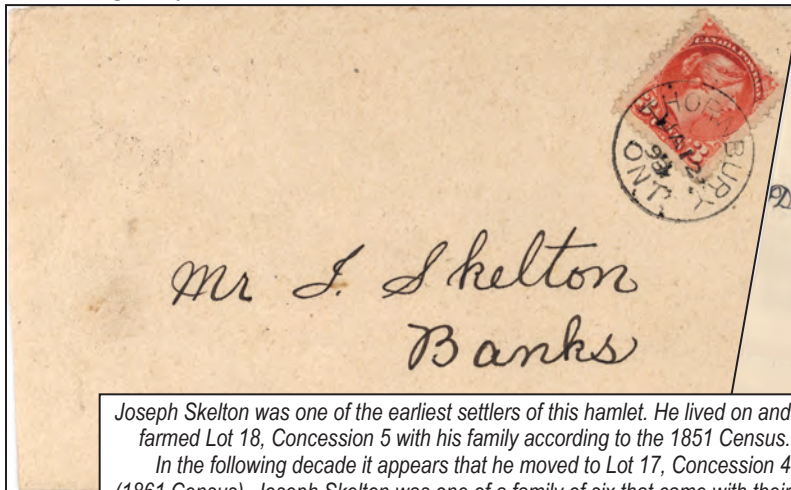 CANADA POSTAGE
3 3
THORNBURY
98
ONT.
Mr J. Skelton
Banks
Joseph Skelton was one of the earliest settlers of this hamlet. He lived on and
farmed Lot 18, Concession 5 with his family according to the 1851 Census.
In the following decade it appears that he moved to Lot 17, Concession 4
(1861 Census). Joseph Skelton was one of a family of six that came with their